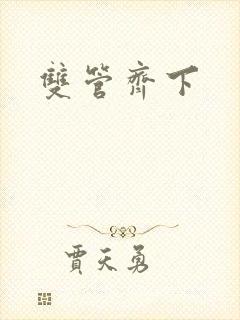 雙管齊下
賈天勇